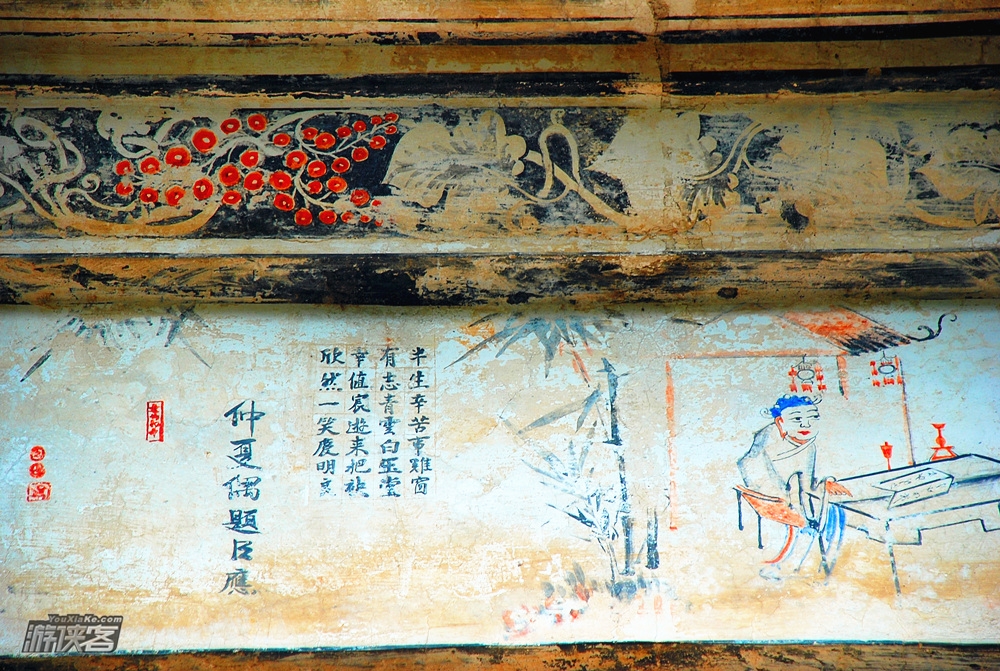 半生辛苦事雞窗
有志青雲白玉堂
幸值宸遊来把袂
欣然一笑慶明良
仲夏偶題臣應
YouXiaKe.com
游侠客